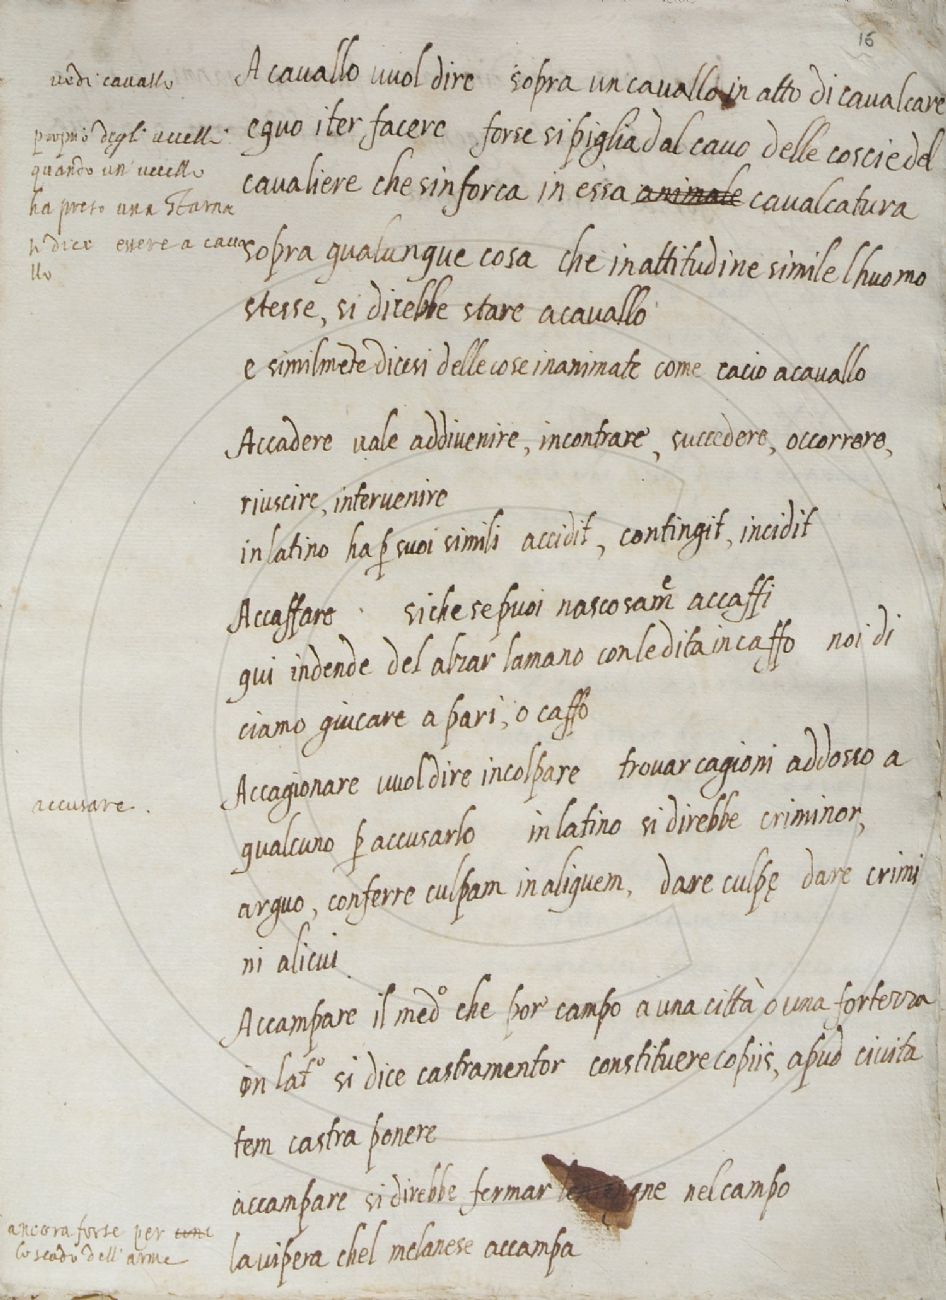 16
vedi cavallo
A cavallo vuol dire sopra un cavallo in atto di cavalcare
proprio degli uccelli
equo iter facere forse si piglia dal cavo delle coscie del
quando un' uccello
cavaliere che sinforca in essa animale cavalcatura
ha preso una starna
si dice essere a cava
llo
sopra qualunque cosa che in attitudine simile l huomo
stesse, si direbbe stare acavallo
e similmete dicesi delle cose inanimate come cacio acavallo
Accadere vale addivenire, incontrare, succedere, occorrere,
riuscire, intervenire
in latino ha p suoi simili accidit, contingit, incidit
Accaffare siche se puoi nascosamẽ accaffi
qui indende del alzar la mano con le dita in caffo noi di
ciamo giucare a pari, o caffo
Accagionare vuol dire incolpare trovar cagioni addosso a
accusare.
qualcuno p accusarlo in latino si direbbe criminor,
arguo, conferre culpam in aliquem, dare culpę dare crimi
ni alicui
Accampare il medº che por campo a una città o una fortezza
in latº si dice castramentor constituere copiis, apud civita
tem castra ponere
accampare si direbbe fermar nel campo
ancora forse per
lo scudo dell' arme
la vipera chel melanese accampa